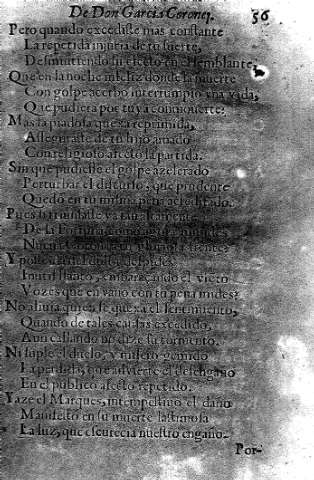 De Don Garcia Coronel. 56
Pero quando excediste mas constante
La repetida injuria de tu suerte,
Desmintiendo su efecto en el semblante,
Que en la noche infeliz donde la muerte
Con golpe acerbo interrumpio vna vida,
Que pudiera por tuya
Mas la piadosa quexa reprimida,
Asseguraste de tu hijo amado
Con religioso afecto la partida.
Sin que pudiesse el golpe azelerado
Perturbar el discurso, que prudente
Quedò en tu misma pena acreditado.
Pues
De la Fortuna
Nunca
Y
Inutil llanto, embaraçando el
Vozes que en vano con tu pena mides?
No aliuia quien se quexa el sentimiento,
Quando de tales causas excedido,
Aun callando no dize su tormento.
Ni suple el duelo, y misero gemido
La perdida, que aduierte el desengaño
En el publico afecto repetido.
Yaze el Marques, intempestiuo el daño
Manifestò en su muerte lastimosa
La luz, que escurecia nuestro engaño.
Por-